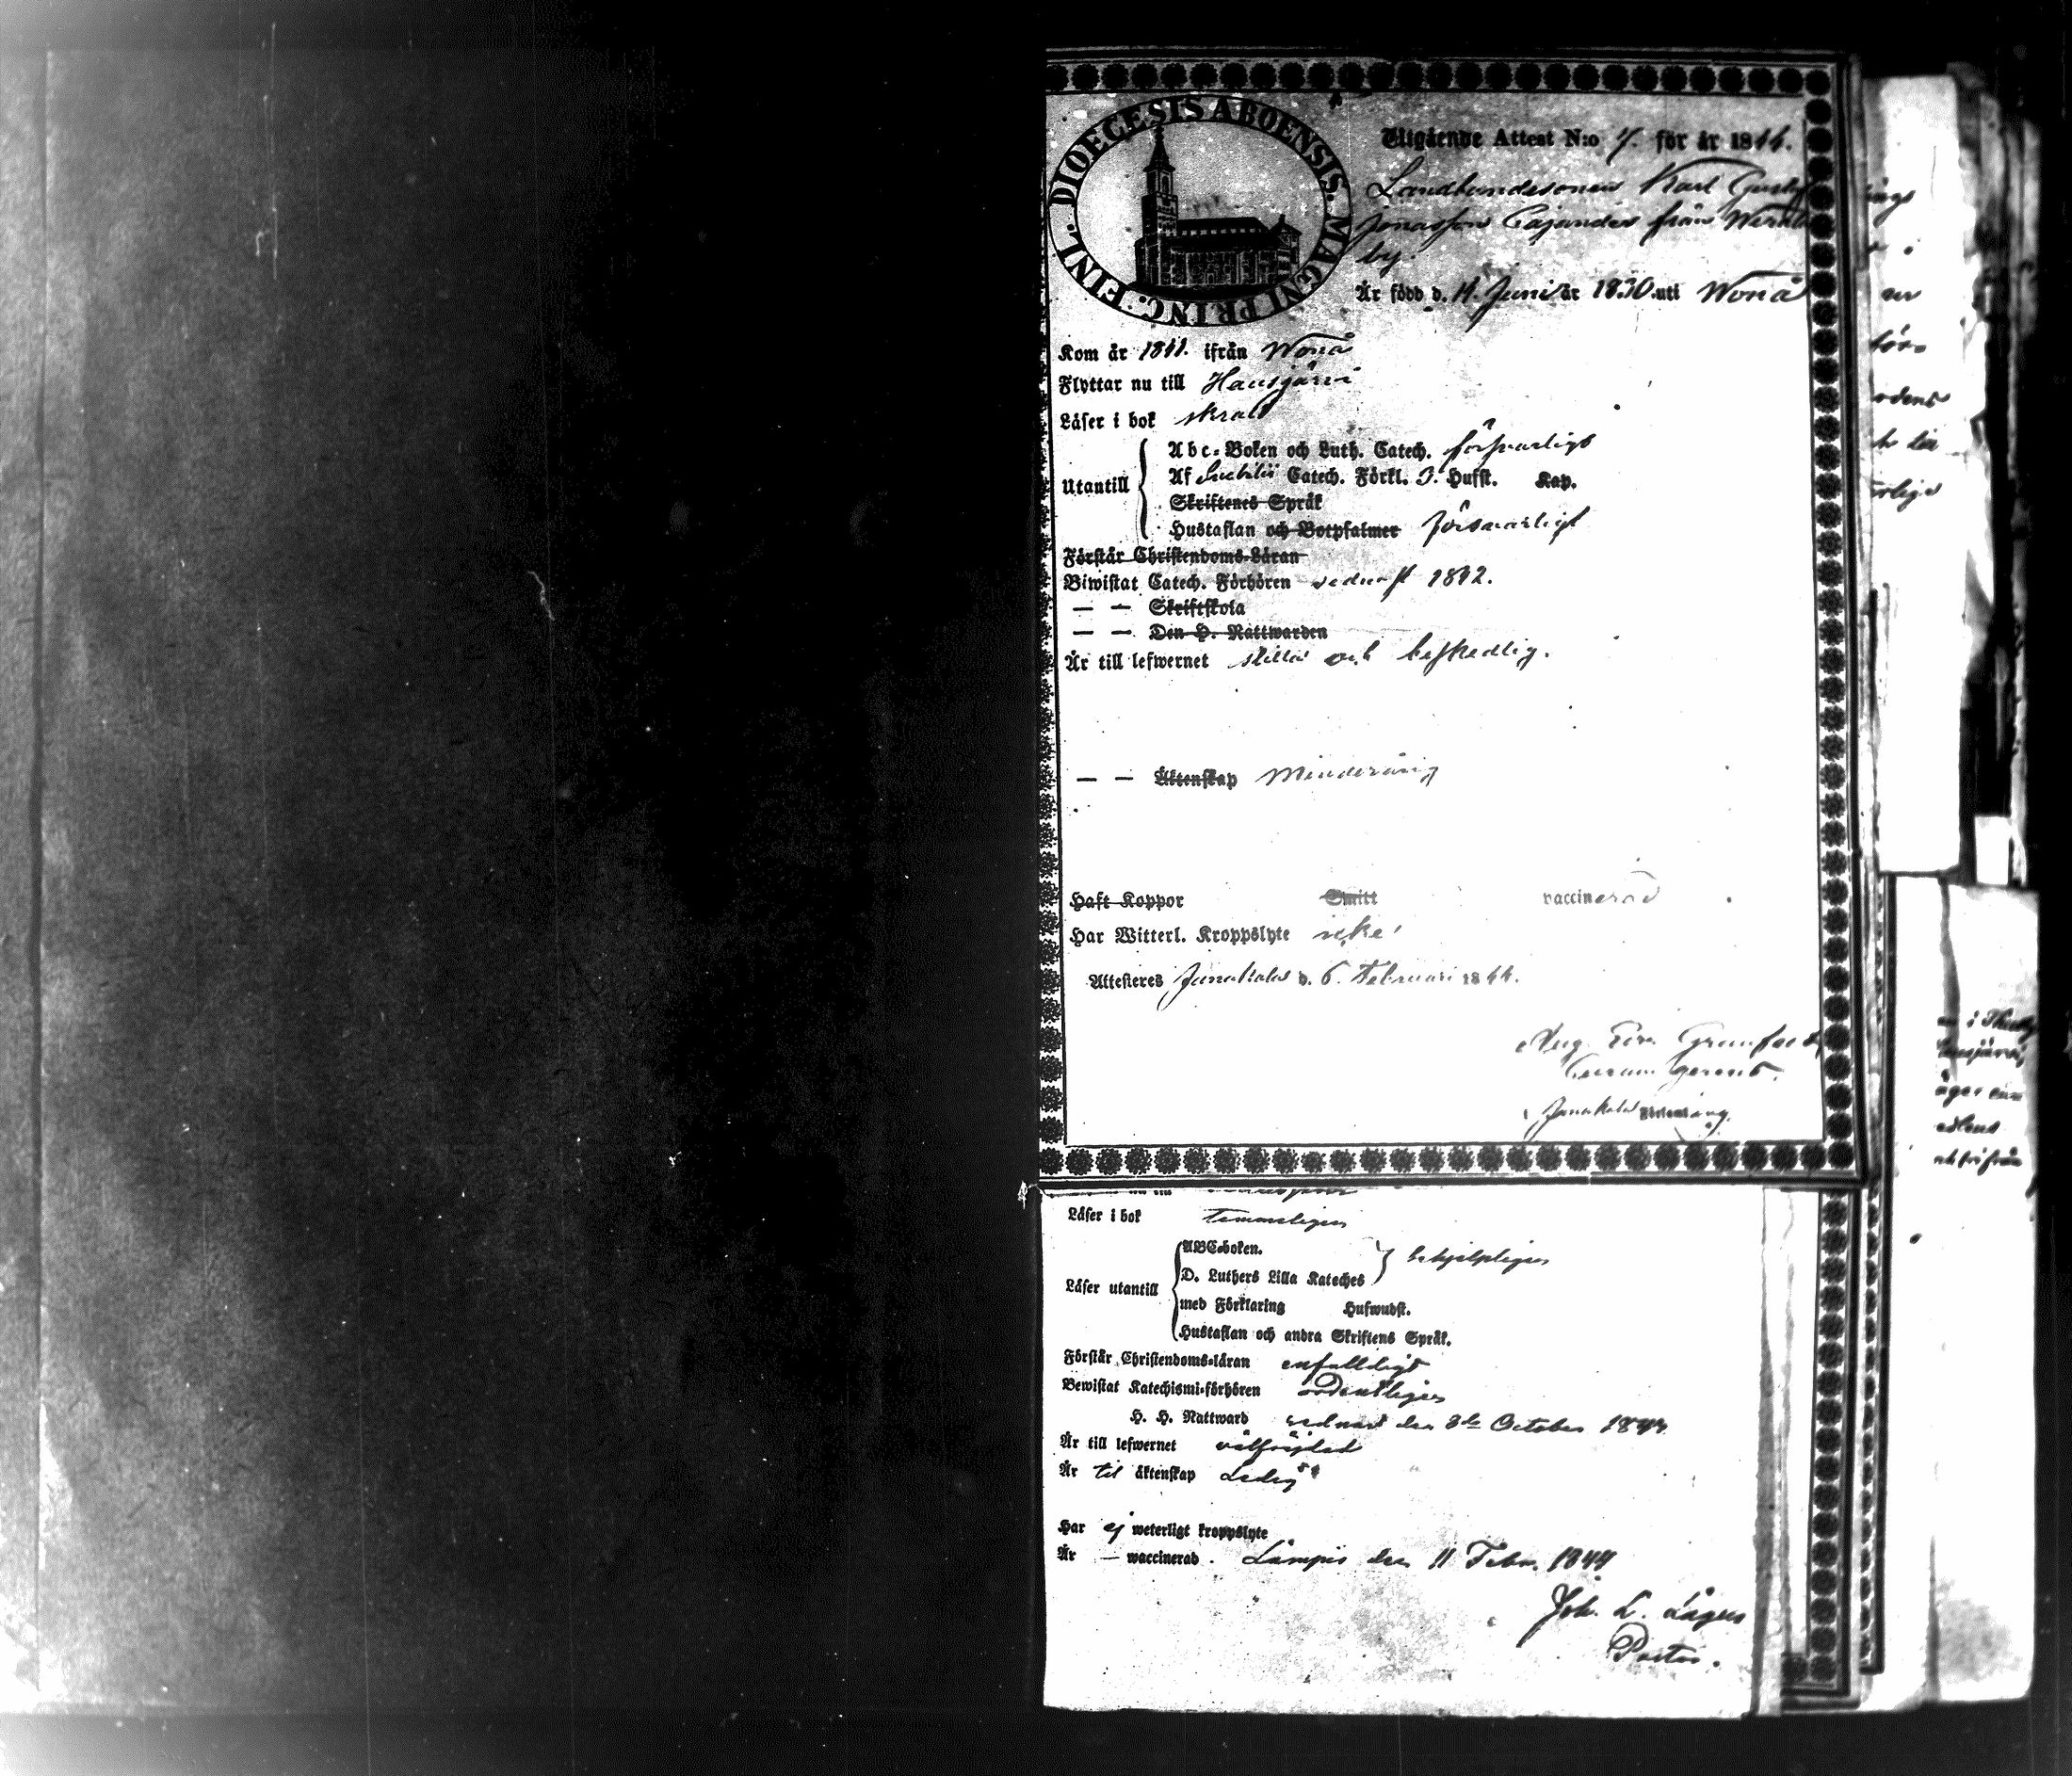 DIOECESIS ABOENSIS. MAGNI PRINC. FINL.
Utgående Attest N:o 7. för år 1844.
Landbondesonen Karl Gust
Jonasson Cajander från
by.
Är född d. 14. Juni år 1830. uti Wonå
Kom år 1841. ifrån Wonå
Flyttar nu till Hausjärvi
Läser i bok skralt
Utantill
Abc-Boken och Luth. Catech. försvarligt
Af Svebilii Catech. Förkl. 3. Hufst. Kap.
Skriftenes Språk
Hustaflan och Botpsalmer försvarligt
Förstår Christendoms-Läran
Biwistat Catech. Förhören sednast 1842.
— — Skriftskola
— — Den H. Nattwarden
Är till lefwernet stilla och beskedlig.
— — Äktenskap Minderårig
Haft Koppor Smitt vaccinerad
Har Witterl. Kroppslyte icke
Attesteres Janakkala d. 6. Februari 1844.
Aug.
Janakkala Församling.
Läser i bok temmeligen
Läser utantill
ABC-boken.
D. Luthers Lilla Kateches } behjelpligen
med Förklaring Hufwudst.
Hustaflan och andra Skriftens Språk.
Förstår Christendoms-läran enfaldigt
Bewistat Katechismi-förhören ordentligen
H. H. Nattward sednast den 8de October 1843
Är till lefwernet välfrejdad
Är til äktenskap Ledig
Har ej weterligt kroppslyte
Är — waccinerad. Lampis den 11 Febr. 1844
Joh. L. Lagus
Pastor.